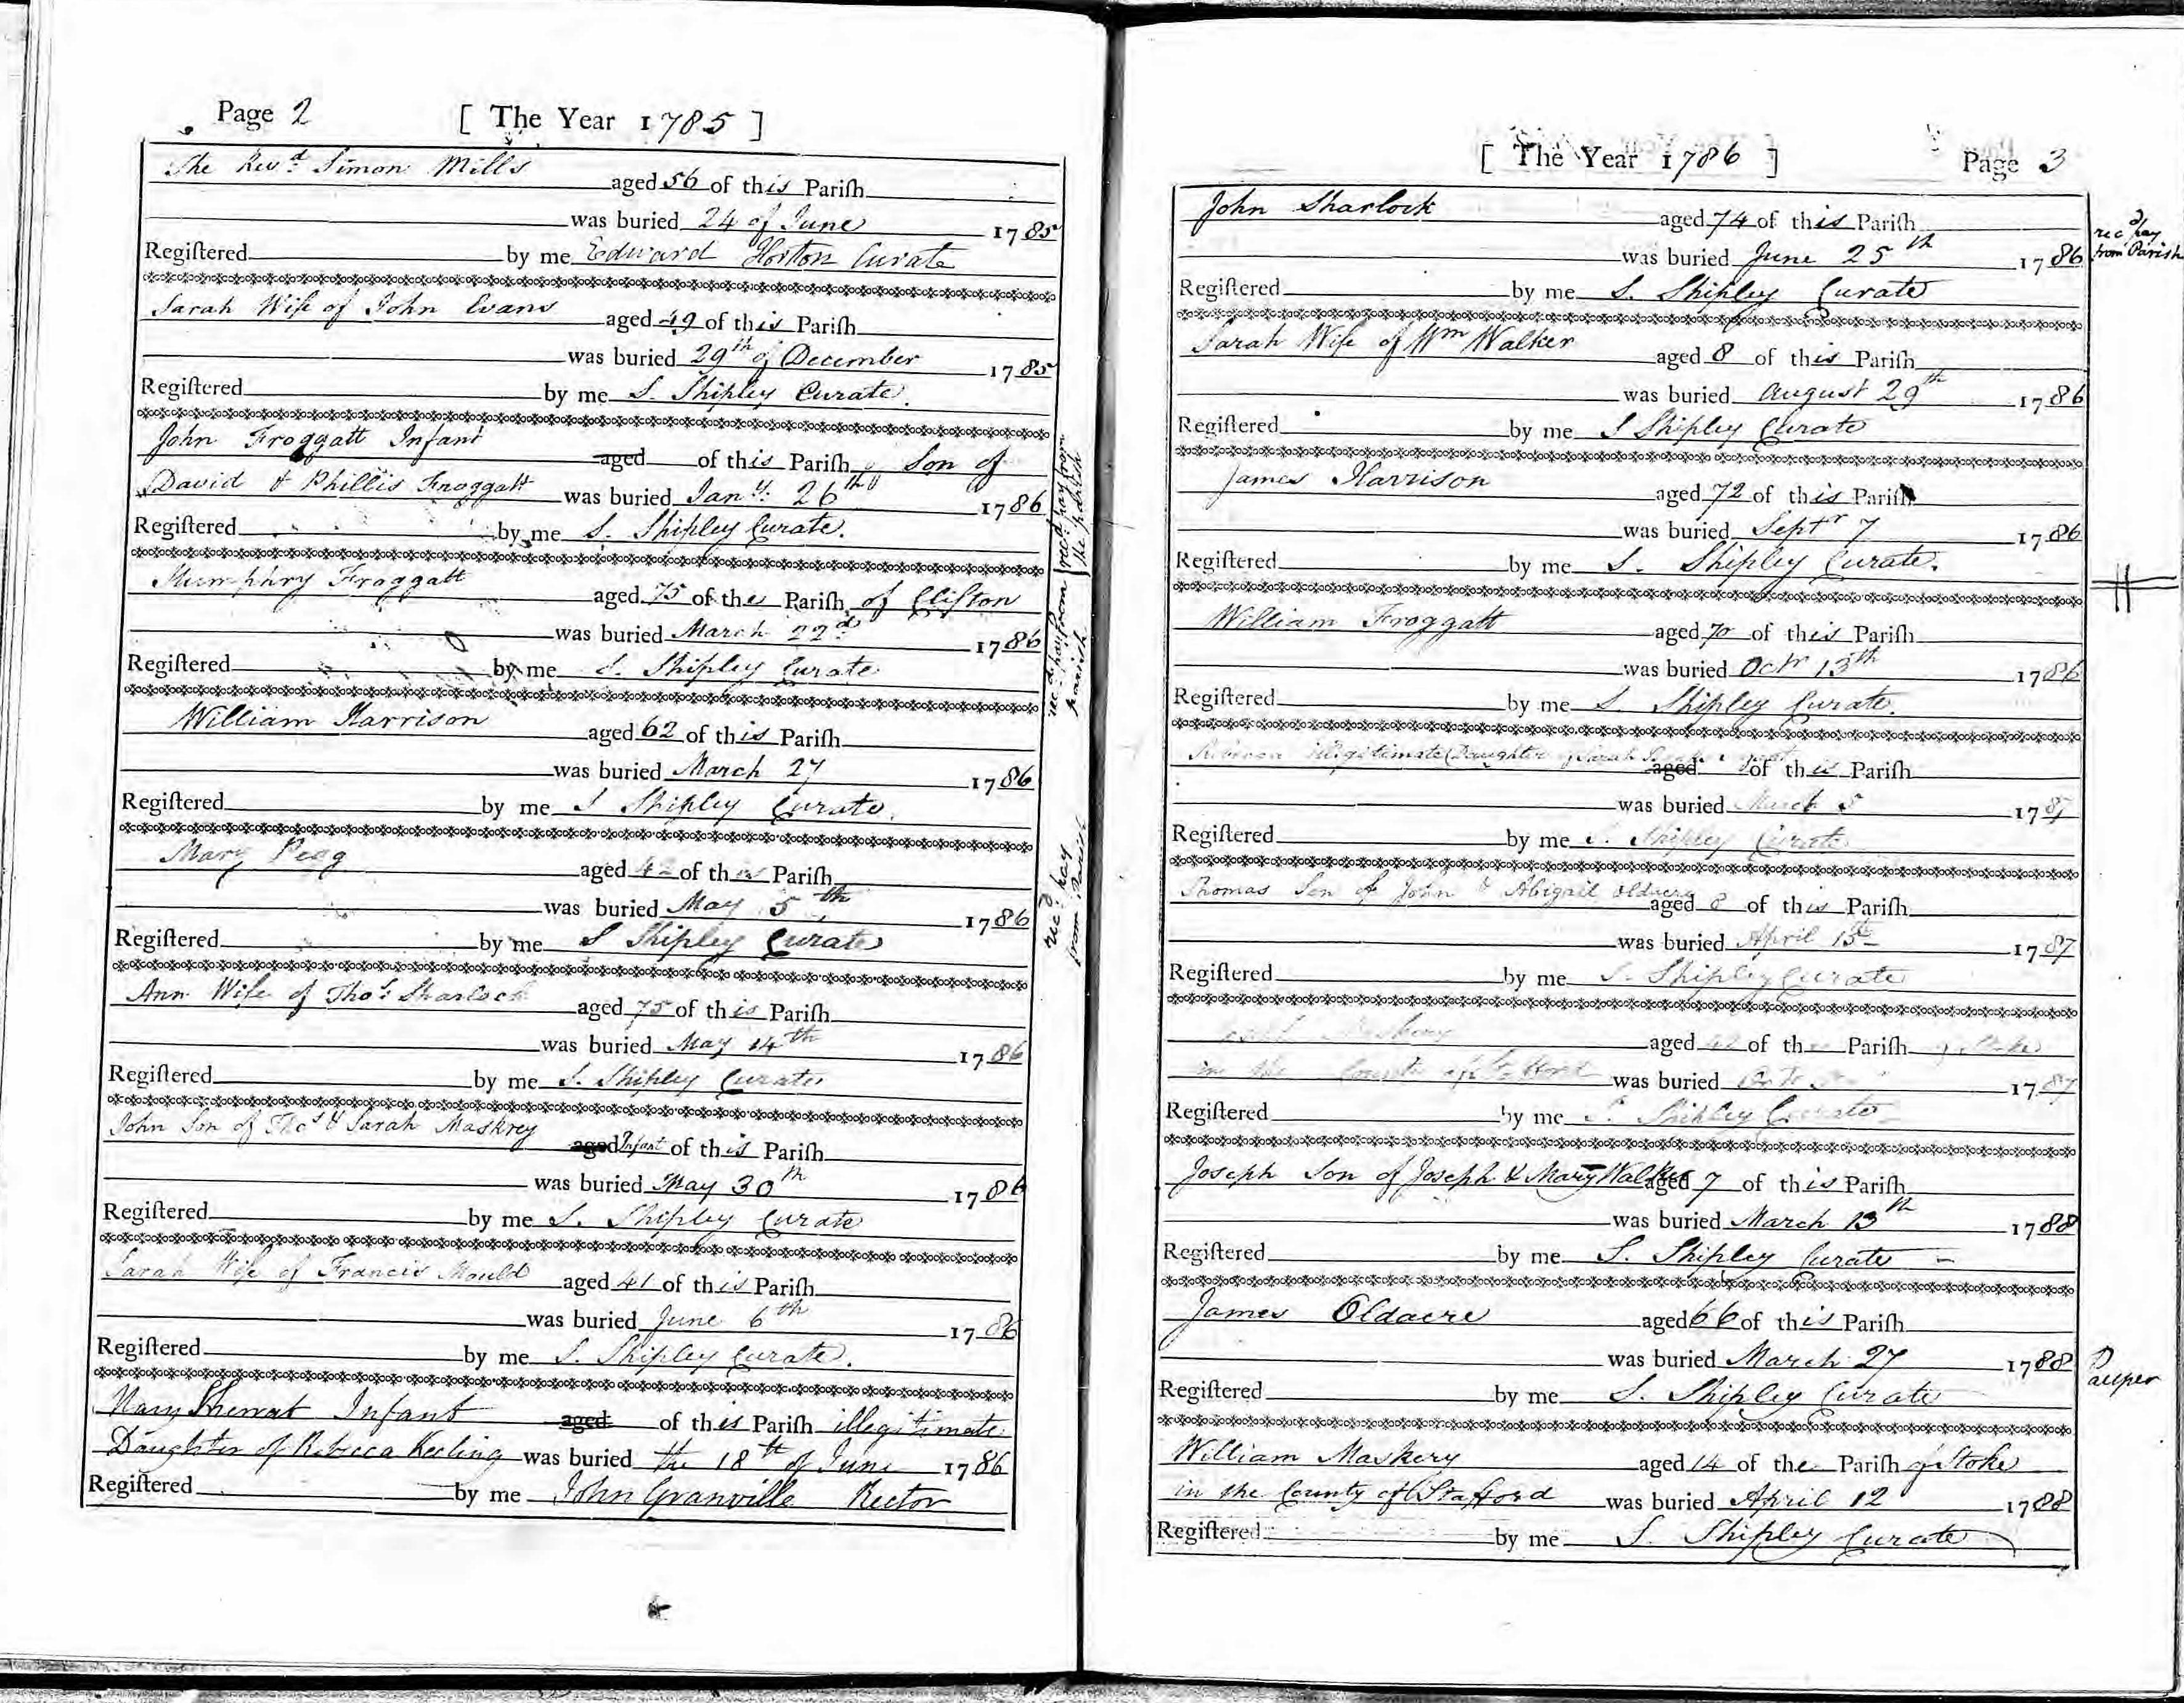 Page 2 [ The Year 1785 ]
The Revd. Simon Mills aged 56 of this Pariſh
was buried 24 of June 1785
Regiſtered by me Edward Horton Curate
Sarah Wife of John Evans aged 49 of this Pariſh
was buried 29th of December 1785
Regiſtered by me S. Shipley Curate.
John Froggatt Infant aged of this Pariſh Son of
David & Phillis Froggatt was buried Jany. 26th 1786
Regiſtered by me S. Shipley Curate.
Humphry Froggatt aged 75 of the Pariſh of Clifton
was buried March 22d 1786
Regiſtered by me S. Shipley Curate
William Harrison aged 62 of this Pariſh
was buried March 27 1786
Regiſtered by me S Shipley Curate.
Mary Pegg aged 42 of this Pariſh
was buried May 5th 1786
Regiſtered by me S Shipley Curate
Ann Wife of Thos. Sharlock aged 75 of this Pariſh
was buried May 14th 1786
Regiſtered by me S. Shipley Curate
John Son of Thos & Sarah Maskrey aged Infant of this Pariſh
was buried May 30th 1786
Regiſtered by me S. Shipley Curate
Sarah Wife of Francis Mould aged 41 of this Pariſh
was buried June 6th 1786
Regiſtered by me S. Shipley Curate.
Mary Infant aged of this Pariſh illegitimate
Daughter of Rebecca Keeling was buried the 18th of June 1786
Regiſtered by me John Granville Rector
recd. pay from
the parish
recd. pay from
parish
recd. pay
from Parish
[ The Year 1786 ] Page 3
John Sharlock aged 74 of this Pariſh
was buried June 25th 1786
Regiſtered by me S. Shipley Curate
recd pay
from Parish
Sarah Wife of Wm Walker aged 8 of this Pariſh
was buried August 29th 1786
Regiſtered by me S Shipley Curate
James Harrison aged 72 of this Pariſh
was buried Septr 7 1786
Regiſtered by me S. Shipley Curate.
William Froggatt aged 70 of this Pariſh
was buried Octr 13th 1786
Regiſtered by me S Shipley Curate.
Rebecca illegitimate Daughter of Sarah aged of this Pariſh
was buried March 5 1787
Regiſtered by me S. Shipley Curate
Thomas Son of John & Abigail Oldacre aged 8 of this Pariſh
was buried April 15th 1787
Regiſtered by me S. Shipley Curate
aged of the Pariſh of Stoke
in the County of Stafford was buried 1787
Regiſtered by me S. Shipley Curate
Joseph Son of Joseph & Mary Walker aged 7 of this Pariſh
was buried March 13th 1788
Regiſtered by me S. Shipley Curate
James Oldacre aged 66 of this Pariſh
was buried March 27 1788
Regiſtered by me S. Shipley Curate
Pauper
William Maskery aged 14 of the Pariſh of Stoke
in the County of Stafford was buried April 12 1788
Regiſtered by me S. Shipley Curate